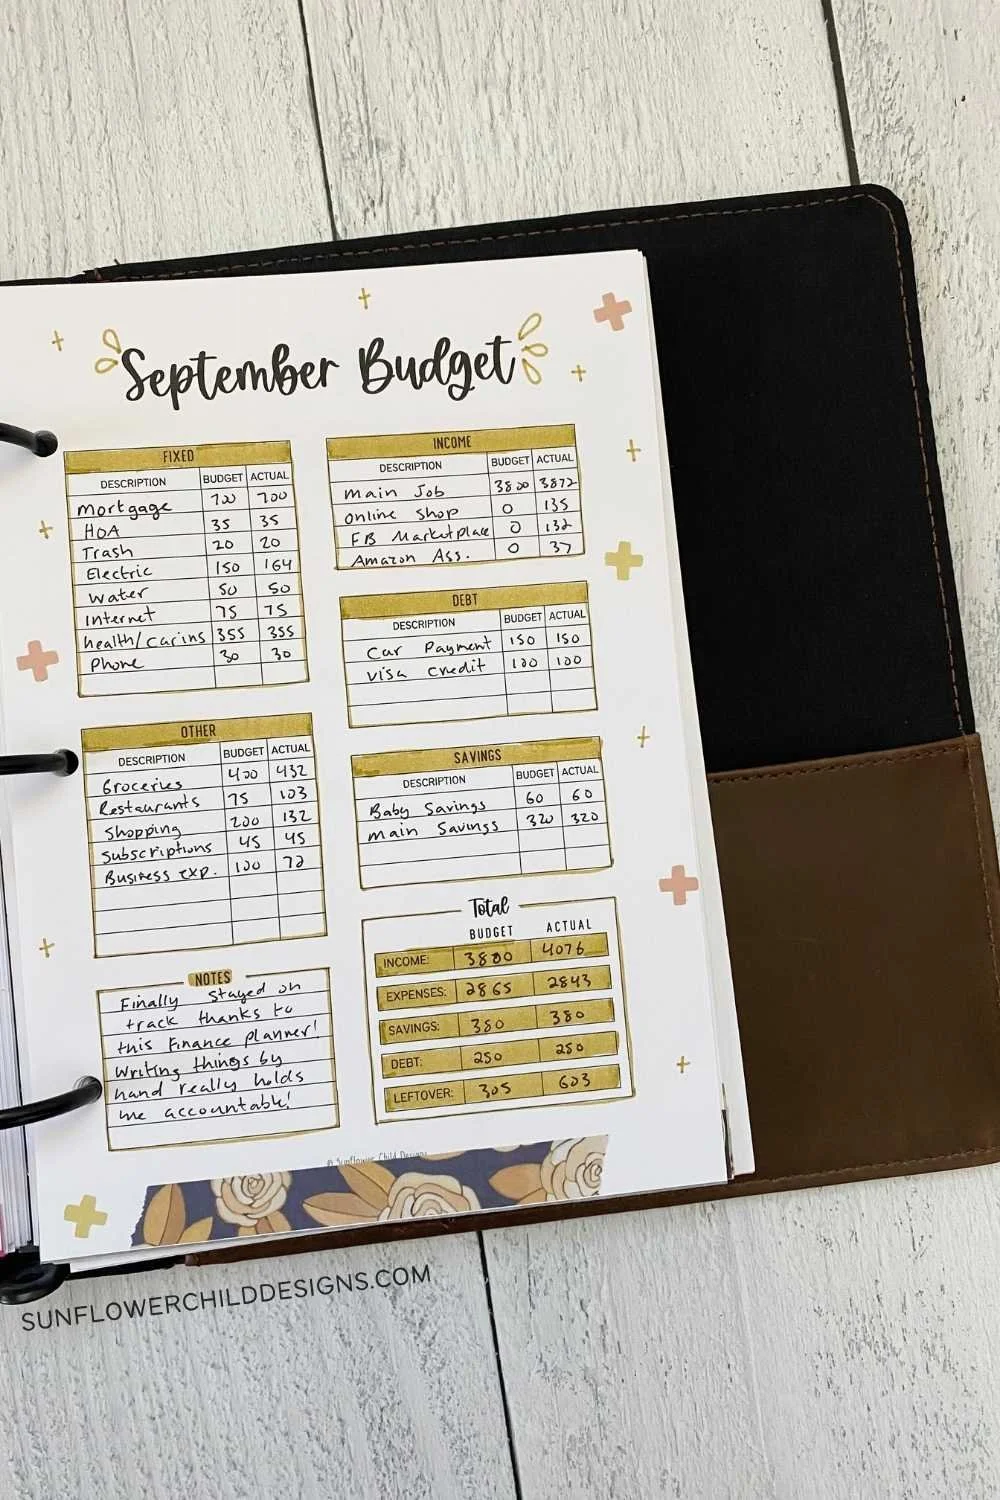 September Budget
FIXED
DESCRIPTION BUDGET ACTUAL
mortgage 700 700
HOA 35 35
Trash 20 20
Electric 150 164
water 50 50
Internet 75 75
health/carins 355 355
Phone 30 30
INCOME
DESCRIPTION BUDGET ACTUAL
main Job 3800 3872
online shop 0 135
FB Marketplace 0 132
Amazon Ass. 0 37
DEBT
DESCRIPTION BUDGET ACTUAL
Car Payment 150 150
visa credit 100 100
OTHER
DESCRIPTION BUDGET ACTUAL
Groceries 400 432
Restaurants 75 103
shopping 200 132
subscriptions 45 45
Business exp. 100 72
SAVINGS
DESCRIPTION BUDGET ACTUAL
Baby Savings 60 60
main Savings 320 320
Total
BUDGET ACTUAL
INCOME: 3800 4076
EXPENSES: 2865 2843
SAVINGS: 380 380
DEBT: 250 250
LEFTOVER: 305 603
NOTES
Finally stayed on
track thanks to
this Finance planner!
Writing things by
hand really holds
me accountable!
© Sunflower Child Designs
SUNFLOWERCHILDDESIGNS.COM